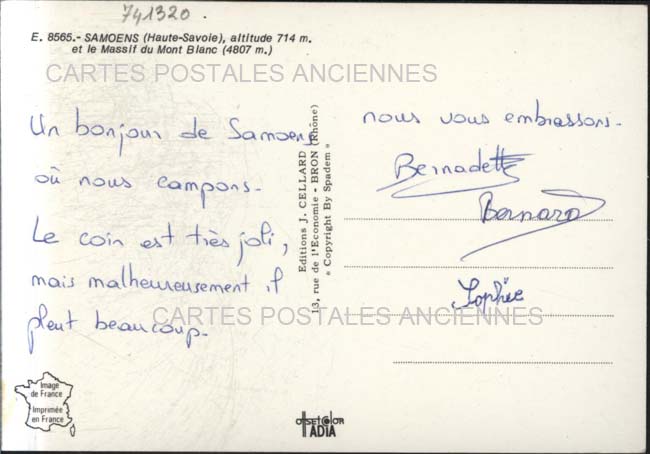 741320.
E. 8565.- SAMOENS (Haute-Savoie), altitude 714 m.
et le Massif du Mont Blanc (4807 m.)
CARTES POSTALES ANCIENNES
Un bonjour de Samoens
où nous campons.
Le coin est très joli,
mais malheureusement il
pleut beaucoup.
Editions J. CELLARD
13, rue de l'Economie - BRON (Rhône)
« Copyright By Spadem »
nous vous embrassons.
Bernadette
Bernard
Sophie
CARTES POSTALES ANCIENNES
Image
de France
Imprimée
en France
OFFSETCOLOR
IADIA